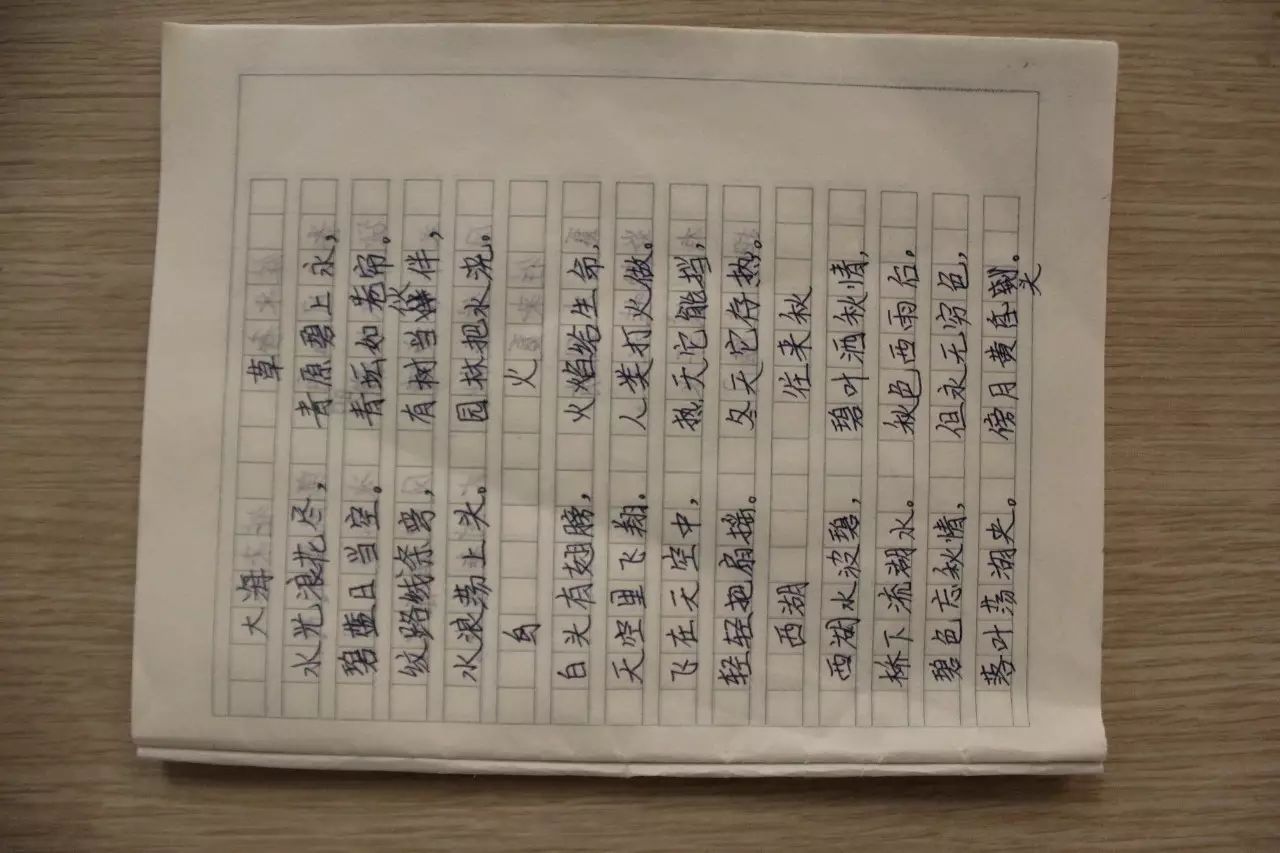 大海 草
水光浪花尽，青原碧上永，
碧蓝日当空。青坛如卷帘。
纹路线条弯，有树当伙伴，
水浪荡上头。园林把水浇。
鸟 火
白头有翅膀，火焰给生命，
天空里飞翔。人类打火做。
飞在天空中，热天它能挡，
轻轻把扇摇。冬天它存热。
西湖 往来秋
西湖水波碧，碧叶洒秋情，
桥下流湖水。秋色西雨台。
碧色忘秋情，但永无穷色，
落叶荡湖央。傍月黄昏头。